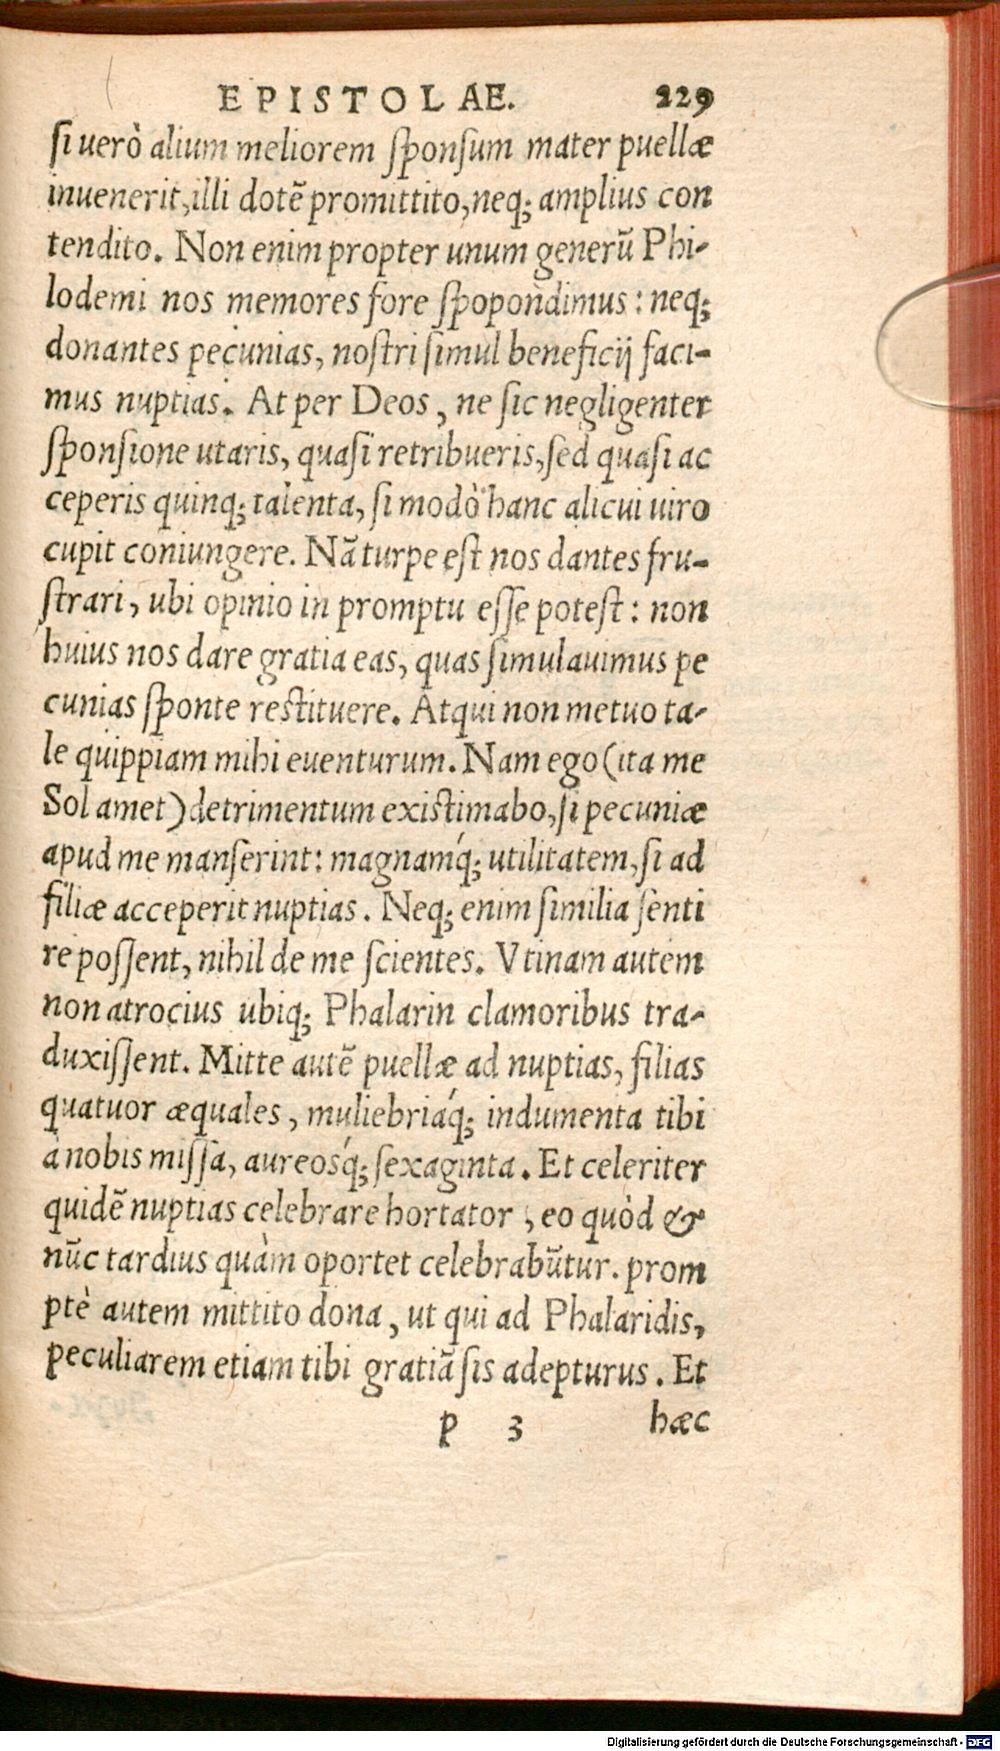 EPISTOLAE. 229
si uerò alium meliorem sponsum mater puellæ
inuenerit, illi dotē promittito, neq; amplius con
tendito. Non enim propter unum generū Phi-
lodemi nos memores fore spopondimus: neq;
donantes pecunias, nostri simul beneficij faci-
mus nuptias. At per Deos, ne sic negligenter
sponsione utaris, quasi retribueris, sed quasi ac
ceperis quinq; talenta, si modò hanc alicui uiro
cupit coniungere. Nā turpe est nos dantes fru-
strari, ubi opinio in promptu esse potest: non
huius nos dare gratia eas, quas simulauimus pe
cunias sponte restituere. Atqui non metuo ta-
le quippiam mihi euenturum. Nam ego (ita me
Sol amet) detrimentum existimabo, si pecuniæ
apud me manserint: magnamq́; utilitatem, si ad
filiæ acceperit nuptias. Neq; enim similia senti
re possent, nihil de me scientes. Vtinam autem
non atrocius ubiq; Phalarin clamoribus tra-
duxissent. Mitte autē puellæ ad nuptias, filias
quatuor æquales, muliebriaq́; indumenta tibi
à nobis missa, aureosq́; sexaginta. Et celeriter
quidē nuptias celebrare hortator, eo quòd &
nūc tardius quàm oportet celebrabūtur. prom
ptè autem mittito dona, ut qui ad Phalaridis,
peculiarem etiam tibi gratiā sis adepturus. Et
p 3 hæc
Digitalisierung gefördert durch die Deutsche Forschungsgemeinschaft - DFG